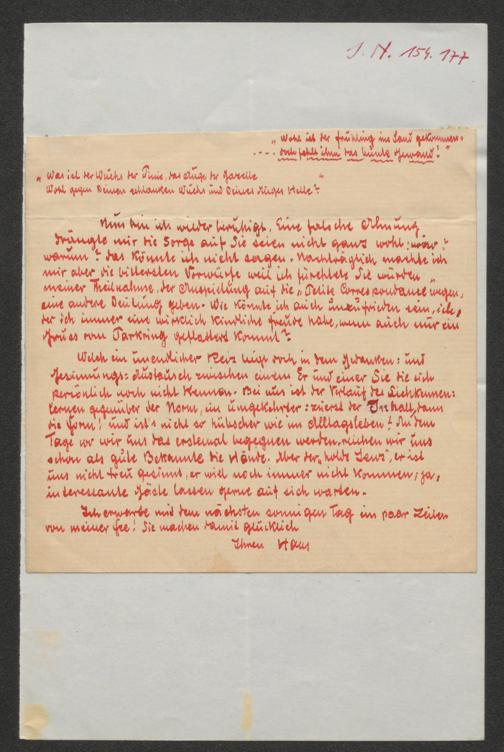 I. N. 154.177
"Wohl ist der Frühling ins Land gekommen
.... doch fehlt ihm das bunte Gewand!"
"Was ist der Wuchs der Pinie, das Auge der Gazelle
Wohl gegen Deinen schlanken Wuchs und Deines Auges Helle"?
Nun bin ich wieder beruhigt. Eine falsche Ahnung
drängte mir die Sorge auf Sie seien nicht ganz wohl;
warum? das könnte ich nicht sagen. Nachträglich machte ich
mir aber die bittersten Vorwürfe weil ich fürchtete Sie würden
meiner Theilnahme, der Anspielung auf die "Petite Correspondance" wegen,
eine andere Deutung geben. Wie könnte ich auch unzufrieden sein, ich,
der ich immer eine wirklich kindliche Freude habe, wenn auch nur ein
Gruss vom Parkring geflattert kommt?
Welch ein unendlicher Reiz liegt doch in dem Gedanken: und
Gesinnungs: Austausch zwischen einem Er und einer Sie die sich
persönlich noch nicht kennen. Bei uns ist der Verlauf des Sichkennen:
lernen gegenüber der Norm, ein umgekehrter: zuerst der Inhalt, dann
die Form! und ist's nicht so hübscher wie im Alltagsleben? An dem
Tage wo wir uns das erstemal begegnen werden, reichen wir uns
schon als gute Bekannte die Hände. Aber der "holde Lenz", er ist
uns nicht treu gesinnt, er will noch immer nicht kommen; ja,
interessante Gäste lassen gerne auf sich warten.
Ich erwarte mit dem nächsten sonnigen Tag ein paar Zeilen
von meiner Fee! Sie machen damit glücklich
Ihren Hans